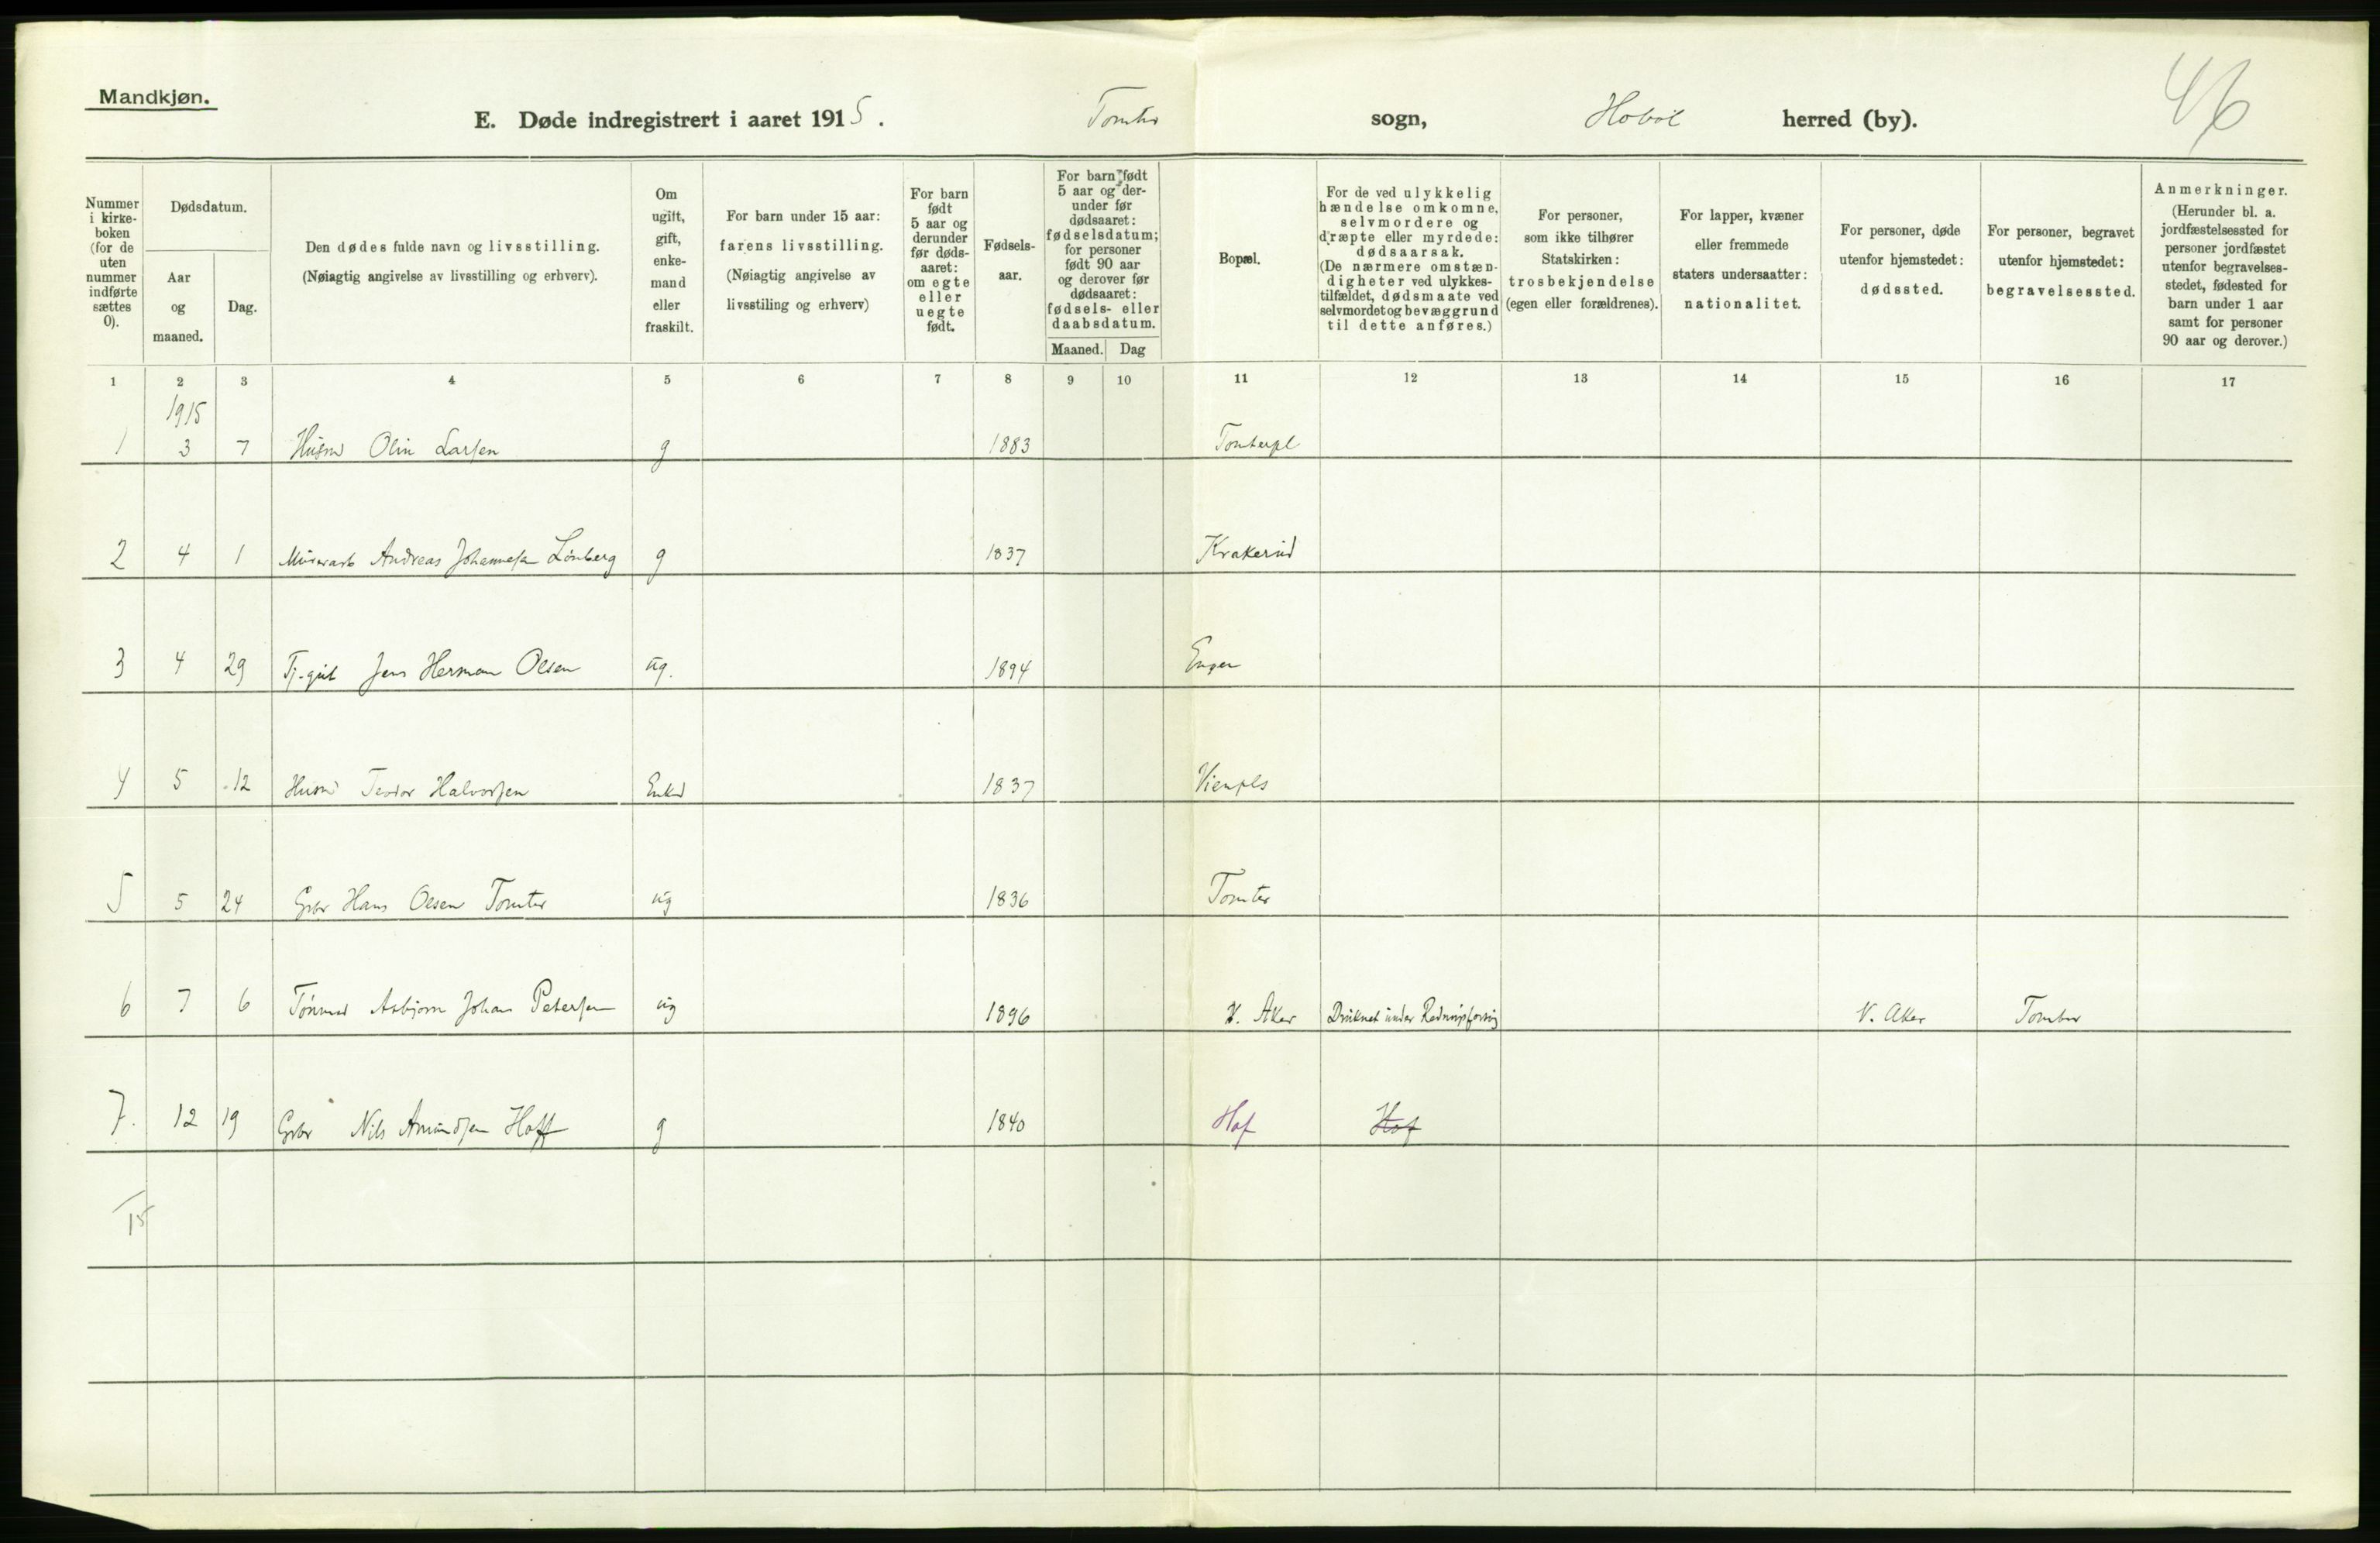 Mandkjøn.
46
E. Døde indregistrert i aaret 1915. Tomter sogn, Hobøl herred (by).
Nummer i kirke-boken (for de uten nummer indførte sættes 0).
Dødsdatum.
Aar og maaned.
Dag.
Den dødes fulde navn og livsstilling.
(Nøiagtig angivelse av livsstilling og erhverv).
Om ugift, gift, enke-mand eller fraskilt.
For barn under 15 aar: farens livsstilling.
(Nøiagtig angivelse av livsstiling og erhverv)
For barn født 5 aar og derunder før døds-aaret: om egte eller uegte født.
Fødsels-aar.
For barn født 5 aar og der-under før dødsaaret: fødselsdatum; for personer født 90 aar og derover før dødsaaret: fødsels- eller daabsdatum.
Maaned. Dag
Bopæl.
For de ved ulykkelig hændelse omkomne, selvmordere og dræpte eller myrdede: dødsaarsak.
(De nærmere omstæn-digheter ved ulykkes-tilfældet, dødsmaate ved selvmordet og bevæggrund til dette anføres.)
For personer, som ikke tilhører Statskirken: trosbekjendelse (egen eller forældrenes).
For lapper, kvæner eller fremmede staters undersaatter: nationalitet.
For personer, døde utenfor hjemstedet: dødssted.
For personer, begravet utenfor hjemstedet: begravelsessted.
Anmerkninger.
(Herunder bl. a. jordfæstelsessted for personer jordfæstet utenfor begravelses-stedet, fødested for barn under 1 aar samt for personer 90 aar og derover.)
1 2 3 4 5 6 7 8 9 10 11 12 13 14 15 16 17
1915
1 3 7 Husmd Olin Larsen g 1883 Tomterpl
2 4 1 Murarb Andreas Johannesen Lønberg g 1837 Krakerud
3 4 29 Tj.gut Jens Herman Olsen ug. 1894 Enger
4 5 12 Husmd Teodor Halvorsen Enkd 1837 Vienpls
5 5 24 Gbr Hans Olsen Tomter ug 1836 Tomter
6 7 6 Asbjørn Johan Petersen ug 1896 V. Aker Druknet under Redningsforsøg V. Aker Tomter
7. 12 19 Gbr Nils Amundsen Hoff g 1840 Hof Hof